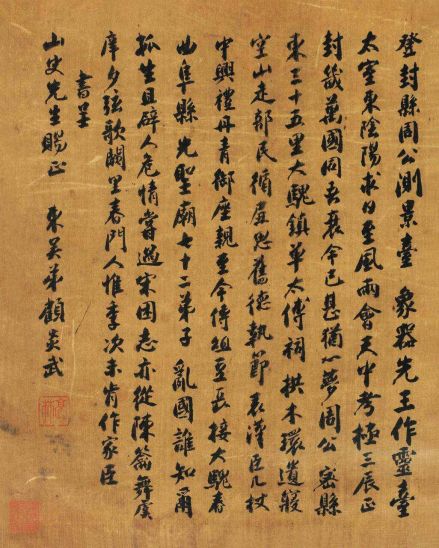 登封縣周公測景臺 象器先王作靈臺
太室東陰陽求日至風雨會天中考極三辰正
封畿萬國同吾衰今已甚猶夢周公 密縣
東三十五里大騩鎮卓太傅祠 拱木環遺寢
空山走部民循思舊德執節表漢臣几杖
中興禮丹青御座親至今俎豆長接大騩春
曲阜縣 先聖廟七十二弟子 亂國誰知爾
孤生且辟人危情嘗過宋困志亦從陳籥舞虞
庠夕弦歌闕里春門人惟季次未肯作家臣
書呈
山史先生賜正 東吳弟顧炎武